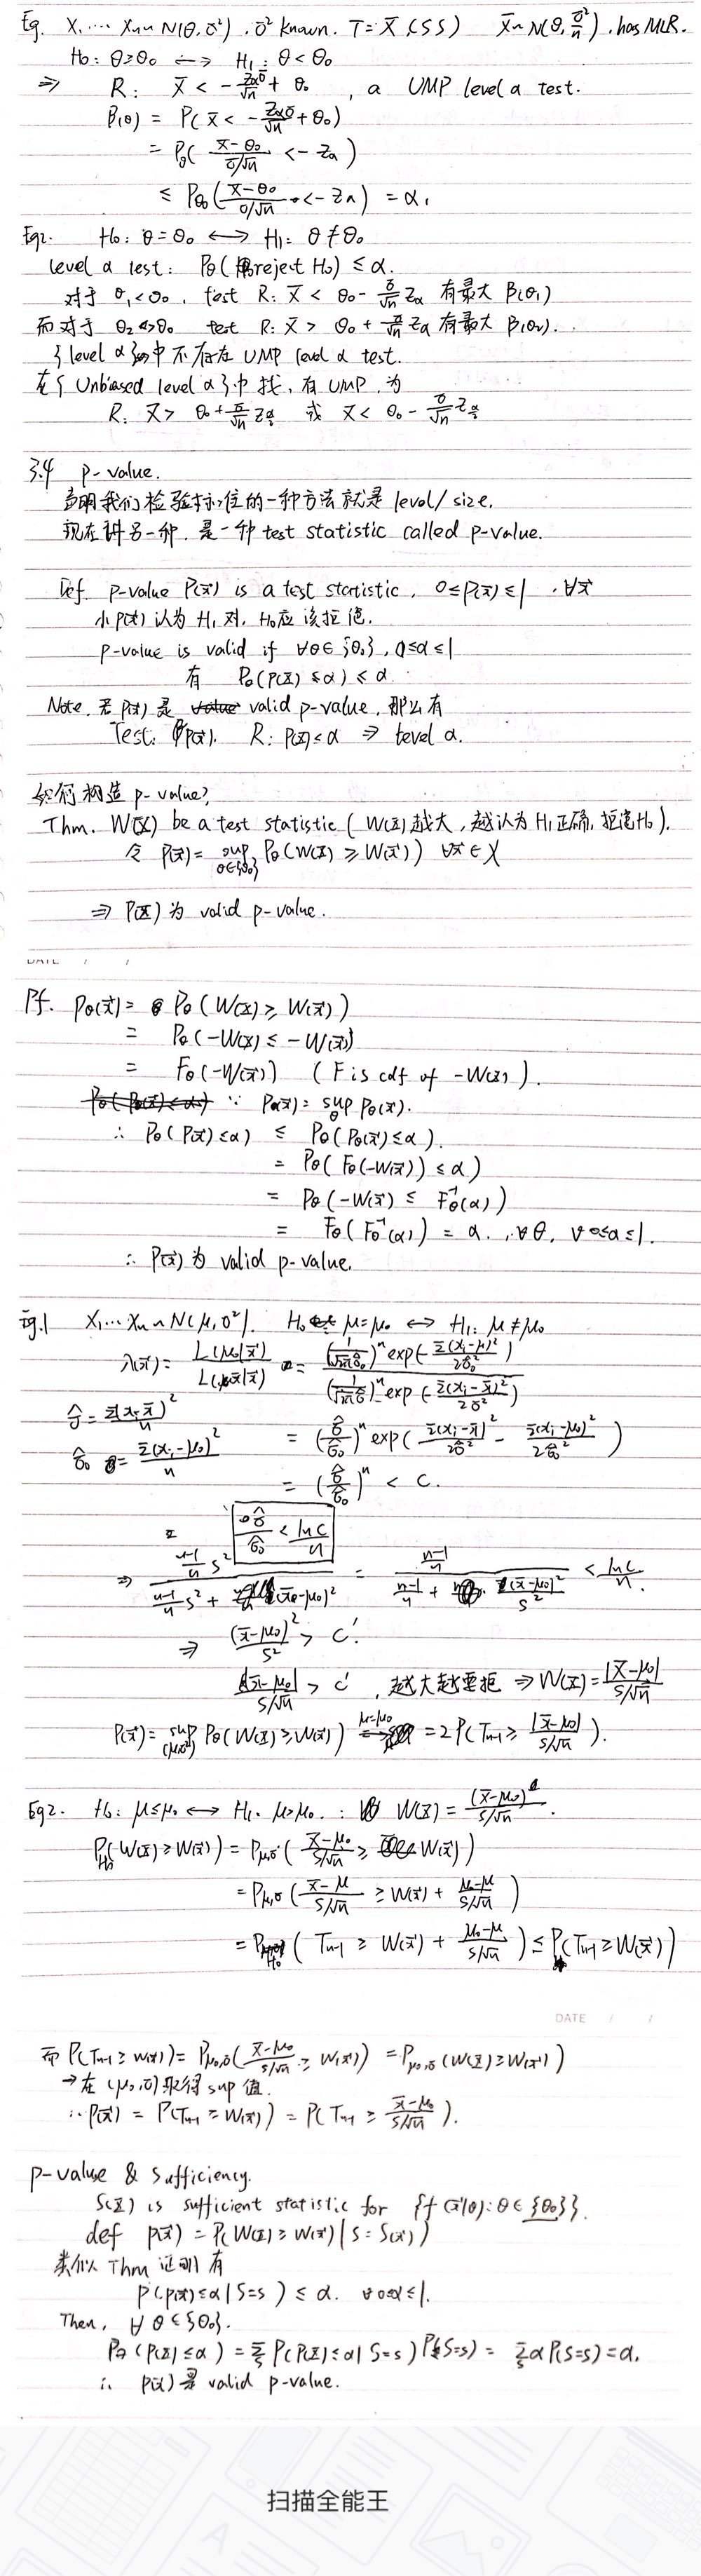 Eg. X₁,⋯ Xn ~ N(θ, σ²), σ² known. T = X̄ (SS) X̄ ~ N(θ, σ²/n), has MLR.
H₀: θ≥θ₀ ⟷ H₁: θ < θ₀
⇒ R: X̄ < -zασ/√n + θ₀, a UMP level α test.
β(θ) = P(X̄ < -zασ/√n + θ₀)
= Pθ( (X̄-θ₀)/(σ/√n) < -zα )
≤ Pθ₀( (X̄-θ₀)/(σ/√n) < -zα ) = α,
Eg2. H₀: θ=θ₀ ⟷ H₁: θ≠θ₀
level α test: Pθ(reject H₀) ≤ α.
对于 θ₁<θ₀, test R: X̄ < θ₀ - σ/√n zα 有最大 β(θ₁)
而对于 θ₂>θ₀ test R: X̄ > θ₀ + σ/√n zα 有最大 β(θ₂).
{level α}中不存在 UMP level α test.
在{Unbiased level α}中找, 有 UMP, 为
R: X̄ > θ₀ + σ/√n zα/2 或 X̄ < θ₀ - σ/√n zα/2
3.4 p-value.
我们检验标准的一种方法就是 level/size,
现在讲另一种, 是一种 test statistic called p-value.
Def. p-value P(x⃗) is a test statistic, 0≤P(x⃗)≤1, ∀x⃗
小P(x⃗) 认为 H₁ 对, H₀应该拒绝.
p-value is valid if ∀θ∈{θ₀}, 0≤α≤1
有 Pθ(P(X⃗)≤α) ≤ α
Note. 若 P(x⃗) 是 valid p-value, 那么有
Test: P(x⃗). R: P(x⃗)≤α ⇒ level α.
如何构造 p-value?
Thm. W(X⃗) be a test statistic (W(X⃗)越大, 越认为 H₁正确, 拒绝H₀).
令 P(x⃗) = sup θ∈{θ₀} Pθ(W(X⃗) ≥ W(x⃗)) ∀x⃗∈X
⇒ P(X⃗) 为 valid p-value.
DATE / /
Pf. Pθ(x⃗) = Pθ(W(X⃗) ≥ W(x⃗))
= Pθ(-W(X⃗) ≤ -W(x⃗))
= Fθ(-W(x⃗)) (F is cdf of -W(X⃗)).
∵ P(x⃗) = sup θ Pθ(x⃗).
∴ Pθ(P(x⃗)≤α) ≤ Pθ(Pθ(x⃗)≤α).
= Pθ(Fθ(-W(x⃗)) ≤ α)
= Pθ(-W(x⃗) ≤ Fθ⁻¹(α))
= Fθ(Fθ⁻¹(α)) = α, ∀θ, ∀0≤α≤1.
∴ P(x⃗) 为 valid p-value.
Eg.1 X₁⋯Xn ~ N(μ,σ²). H₀ μ=μ₀ ⟷ H₁: μ≠μ₀
λ(x⃗) = L(μ₀|x⃗)/L(x̄|x⃗) = (1/√2πσ̂₀)ⁿ exp(-Σ(xᵢ-μ)²/2σ̂₀²) / (1/√2πσ̂)ⁿ exp(-Σ(xᵢ-x̄)²/2σ̂²)
σ̂ = Σ(xᵢ-x̄)²/n
σ̂₀ = Σ(xᵢ-μ₀)²/n = (σ̂/σ̂₀)ⁿ exp( Σ(xᵢ-x̄)²/2σ̂² - Σ(xᵢ-μ₀)²/2σ̂₀² )
= (σ̂/σ̂₀)ⁿ < C.
σ̂/σ̂₀ < ln C/n
⇒ (n-1)/n S² / ((n-1)/n S² + (x̄-μ₀)²) = (n-1)/n / ((n-1)/n + (x̄-μ₀)²/S²) < ln C/n.
⇒ (x̄-μ₀)²/S² > C'.
|x̄-μ₀|/(S/√n) > C', 越大越要拒 ⇒ W(X⃗) = |X̄-μ₀|/(S/√n)
P(x⃗) = sup (μ,σ²) Pθ(W(X⃗)≥W(x⃗)) μ=μ₀ = 2P(Tn-1 ≥ |x̄-μ₀|/(S/√n)).
Eg2. H₀: μ≤μ₀ ⟷ H₁: μ>μ₀. : W(X⃗) = (X̄-μ₀)/(S/√n).
P H₀(W(X⃗)≥W(x⃗)) = Pμ,σ( (X̄-μ₀)/(S/√n) ≥ W(x⃗) )
= Pμ,σ( (X̄-μ)/(S/√n) ≥ W(x⃗) + (μ₀-μ)/(S/√n) )
= P H₀( Tn-1 ≥ W(x⃗) + (μ₀-μ)/(S/√n) ) ≤ P(Tn-1 ≥ W(x⃗))
DATE / /
而 P(Tn-1 ≥ W(x⃗)) = Pμ₀,σ( (X̄-μ₀)/(S/√n) ≥ W(x⃗) ) = Pμ₀,σ(W(X⃗)≥W(x⃗))
→ 在 (μ₀,σ) 取得 sup 值.
∴ P(x⃗) = P(Tn-1 ≥ W(x⃗)) = P(Tn-1 ≥ (x̄-μ₀)/(S/√n)).
p-value & sufficiency.
S(X⃗) is sufficient statistic for {f(x⃗|θ): θ∈{θ₀}}.
def P(x⃗) = P(W(X⃗)≥W(x⃗) | S=S(x⃗))
类似 Thm 证明 有
P(P(x⃗)≤α | S=s) ≤ α. ∀0≤α≤1.
Then, ∀θ∈{θ₀}.
Pθ(P(X⃗)≤α) = Σs P(P(X⃗)≤α | S=s) P(S=s) = Σs αP(S=s) = α.
∴ P(x⃗) 是 valid p-value.
扫描全能王